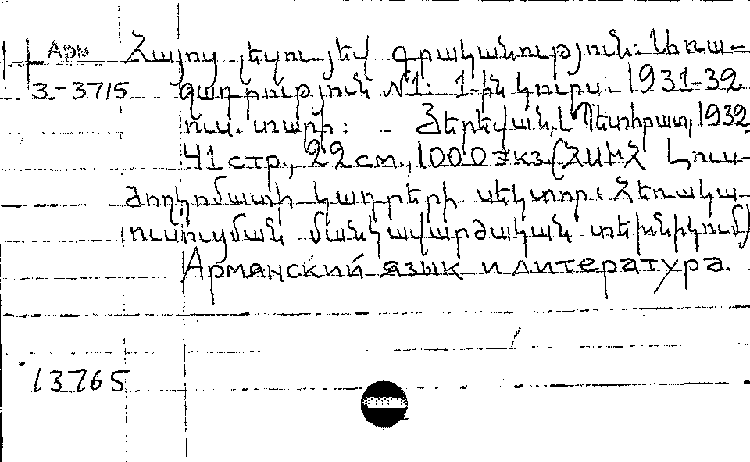 Арм Հայոց լեզու յեվ գրականություն: Առա-
3-3715 ջադրություն №1: 1-ին կուրս. 1931-32
ուս. տարի: - Յերեվան, Պետհրատ, 1932
41 стр., 22 см., 1000 экз. (ՀՍԽՀ Լուս-
ժողկոմատի կադրերի սեկտոր: Հեռակա-
ուսուցման մանկավարժական տեխնիկում)
Армянский язык и литература.
13765